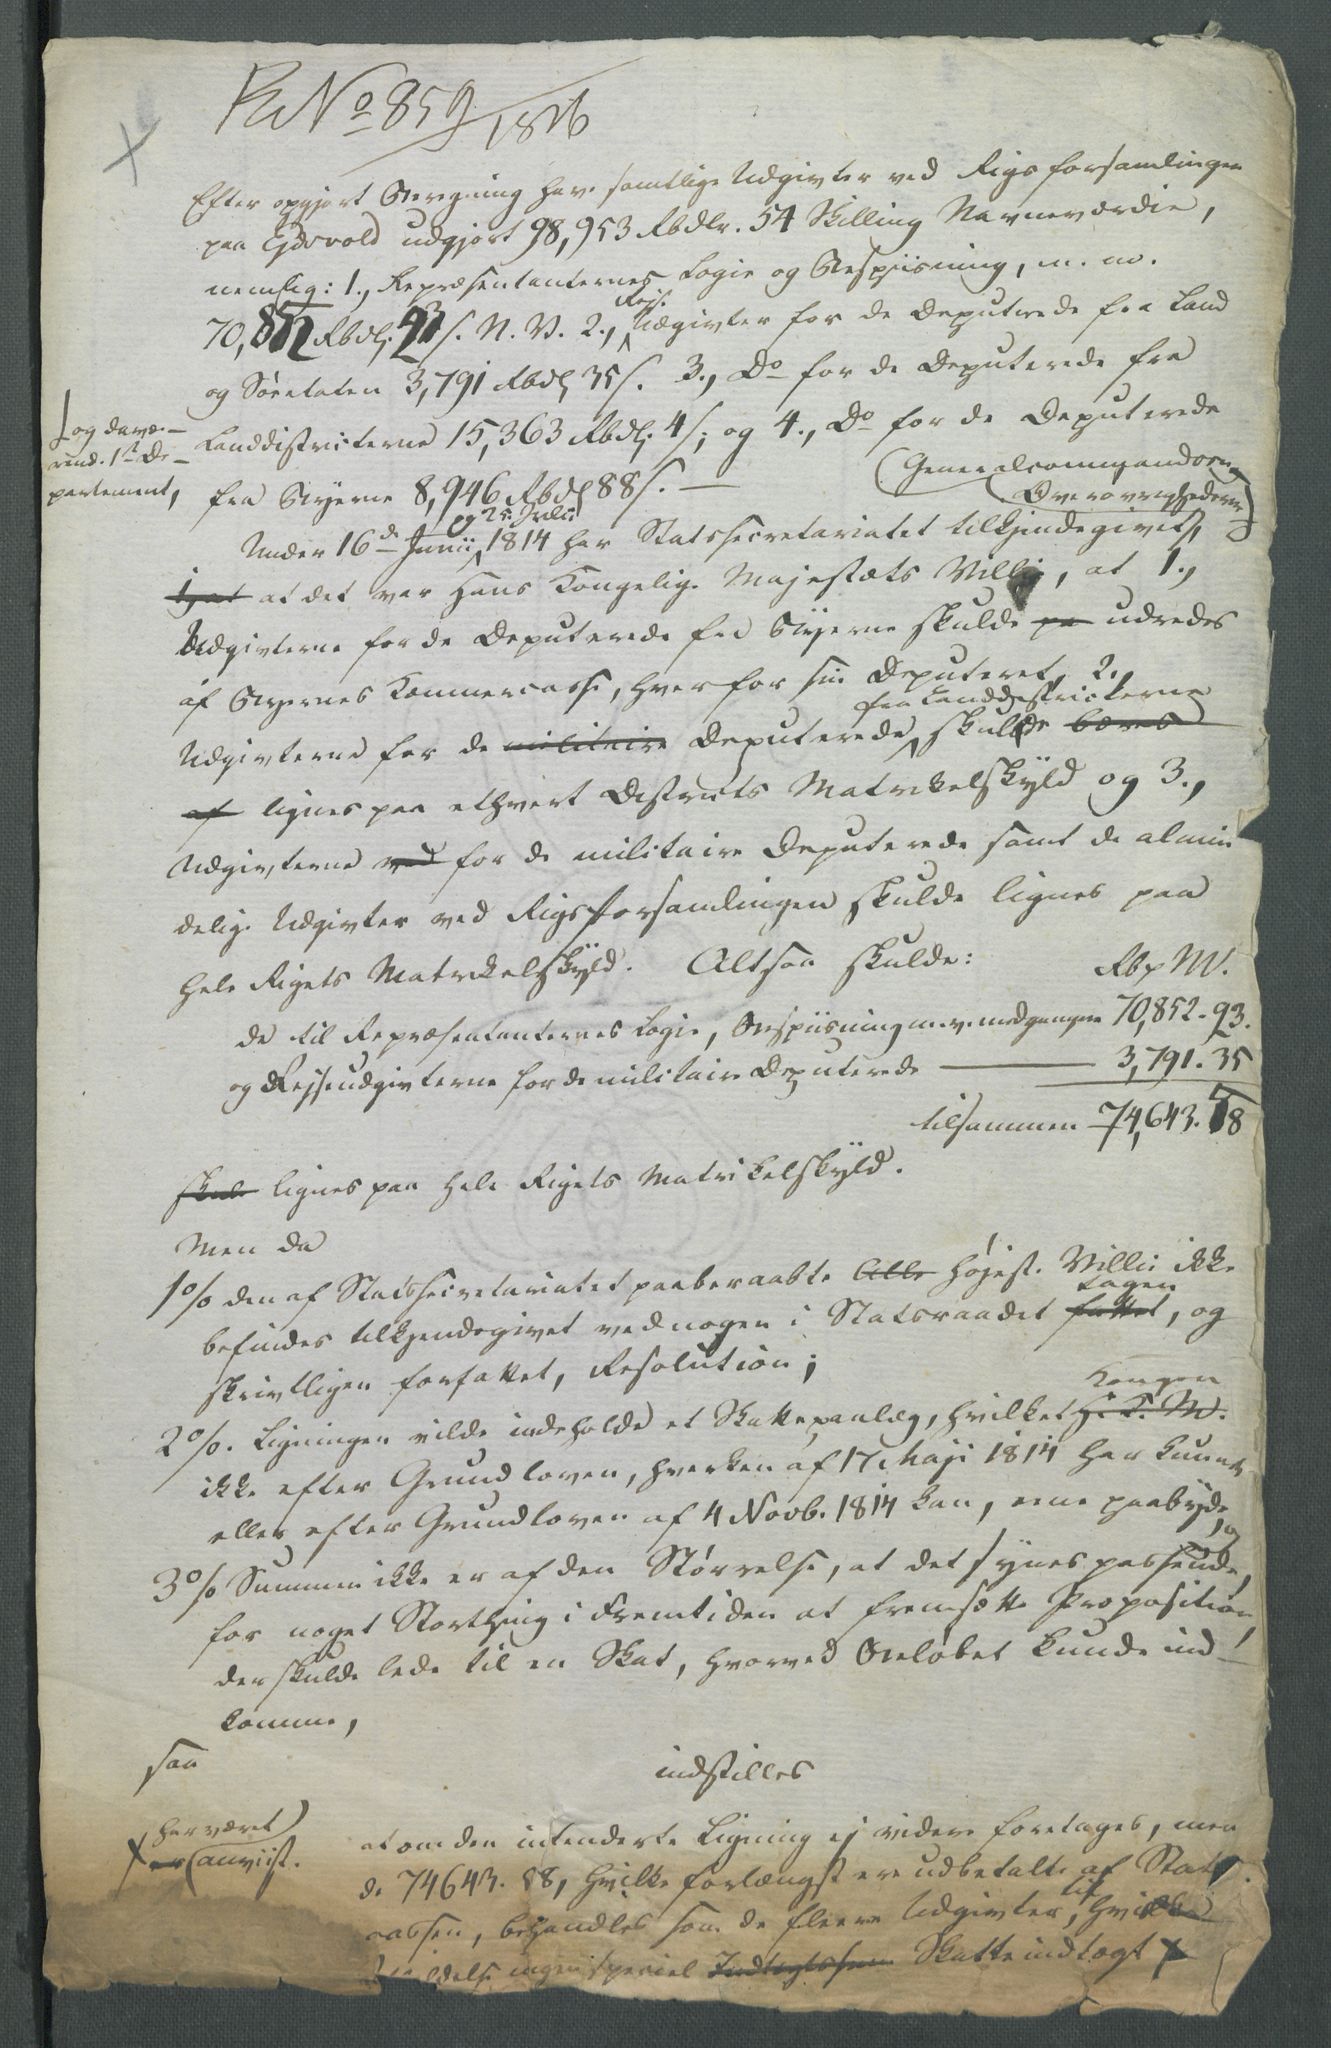 No 859/1816
Efter opgjort Beregning har samtlige Udgivter ved Rigsforsamlingen
paa Ejdsvold udgjort 98,953 Rbdlr. 54 Skilling Navneværdie,
nemlig: 1., Repræsentanternes Logie og Bespiisning, m. m.
70,852 Rbdl. 93 s. N. V. 2., Rejse
Udgivter for de Deputerede fra Land
og Søeetaten 3,791 Rbdl 35 s. 3., Do for de Deputerede fra
Landdistricterne 15,363 Rbdl. 4 s; og 4., Do for de Deputerede
fra Byerne 8,946 Rbdl 88 s. —
og davæ-
rend. 1ste De-
partement,
Generalcommandoen
Overøvrighederne
og 25 Julii
Under 16de Junii 1814 har Statssecretariatet tilkjendegivet,
at det var Hans Kongelige Majestæts Villie, at 1.,
Udgivterne for de Deputerede fra Byerne skulde pa udredes
af Byernes Kæmmercasse, hver for sin Deputeret, 2.,
fra Landdistricterne
Udgivterne for de militaire Deputerede skulde bæres
af lignes paa ethvert Districts Matrikelskyld og 3.,
Udgivterne ved for de militaire Deputerede samt de almin
delige Udgivter ved Rigsforsamlingen skulde lignes paa
hele Rigets Matrikelskyld. Altsaa skulde:
Rbd NV.
de til Repræsentanternes Logie, Bespiisning m. v. medgangne 70,852. 93.
og Rejseudgivterne for de militaire Deputerede — 3,791. 35
tilsammen 74,643. 88
skule lignes paa hele Rigets Matrikelskyld.
Men da
1o/o den af Statssecretariatet paaberaabte Aller højest. Villie ikke
befindes tilkjendegivet ved nogen i Statsraadet fattet, og
tagen
skrivtligen forfattet, Resolution;
2o/o. Ligningen vilde indeholde et Skattepaalæg, hvilket H. K. M.
Kongen
ikke efter Grundloven, hverken af 17 Maji 1814 har kunnet
eller efter Grundloven af 4 Novb. 1814 kan, ene paabyde, og
3o/o Summen ikke er af den Størrelse, at det synes passende,
for noget Storthing i Fremtiden at fremsætte Proposition,
der skulde lede til en Skat, hvorved Beløbet kunde ind-
komme,
saa
indstilles
har været
er anviist.
at om den intenderte Ligning ej videre foretages, men
de 74643. 88, hvilke forlængst ere udbetalte af Stats
cassen, behandles som de fleere Udgivter, til hvilke
ingen speciel Indtægtssum Skatteindtægt X